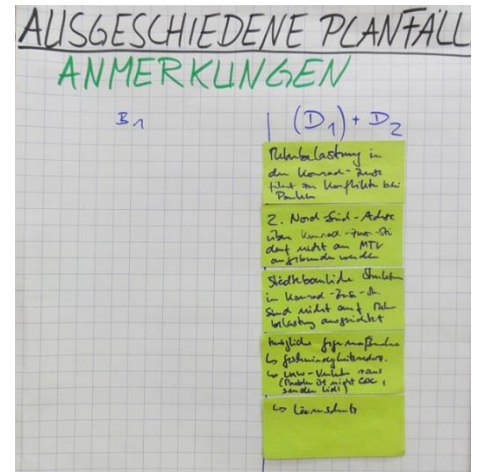 AUSGESCHIEDENE PLANFÄLL
ANMERKUNGEN
B1
(D1) + D2
Mehrbelastung in
der Konrad-Zuse
führt zu Konflikten bei
Parken
2. Nord-Süd-Achse
über Konrad-Zuse-Str
darf nicht an MTV
angebunden werden
Städtebauliche Strukturen
in Konrad-Zuse-Str.
sind nicht auf Mehr
belastung ausgerichtet
mögliche Gegenmaßnahmen
↳ Geschwindigkeitsreduz.
↳ LKW-Verkehr raus
(Problem ist nicht
sondern Lidl)
↳ Lärmschutz